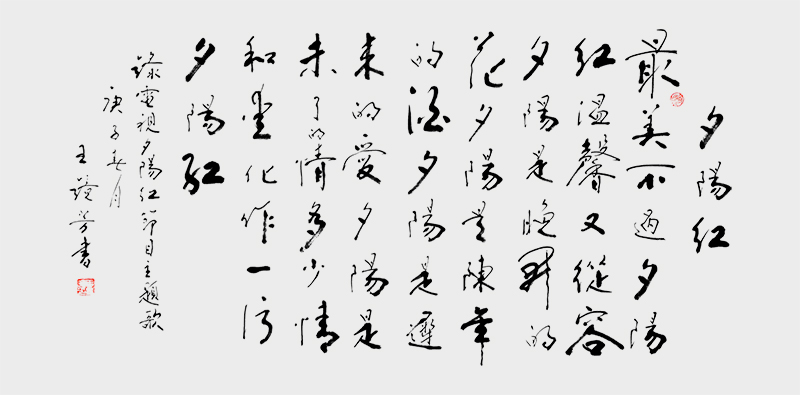 夕陽红
最美不過夕陽
红溫馨又從容
夕陽是晚开的
花夕陽是陳年
的酒夕陽是遲
来的愛夕陽是
未了的情多少情
和愛化作一片
夕陽红
錄電視夕陽红節目主題歌
庚子春月
王芳書